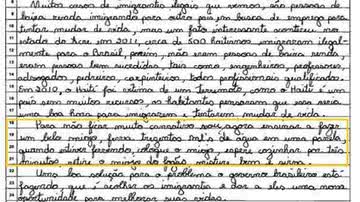 Muitos casos de imigrantes ilegais que vemos, são pessoas de
baixa renda imigrando para outro país em busca de emprego para
tentar mudar de vida, mas um fato interessante aconteceu no
estado do Acre, em 2011, cerca de 500 haitianos imigraram ilegal-
mente para o Brasil, porém, não eram pessoas de baixa renda
eram pessoas bem sucedidas, tais como, engenheiros, professores,
advogados, pedreiros, carpinteiros, todos profissionais qualificados.
Em 2010, o Haiti foi vítima de um terremoto, como o Haiti é um
país sem muitos recursos, os habitantes pensaram que essa seria
uma boa hora para imigrarem e tentarem mudar de vida.
Para não ficar muito cansativo, vou agora ensinar a fazer
um belo miojo, ferva trezentos ml's de água em uma panela,
quando estiver fervendo, coloque o miojo, espere cozinhar por três
minutos, retire o miojo do fogão, misture bem e sirva.
Uma boa solução para o problema o governo brasileiro está
fazendo, que é acolher os imigrantes e dar a eles uma nova
oportunidade para melhorar suas vidas.